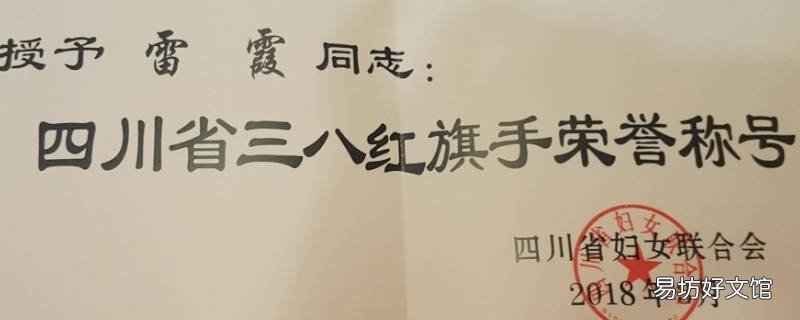 授予 雷霞 同志：
四川省三八红旗手荣誉称号
四川省妇女联合会
2018年 月
四川省妇女联合会
易坊好文馆